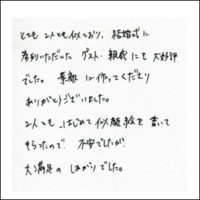 とても 2人とも似ており、結婚式に
参列いただいた ゲスト・親戚にも大好評
でした。 素敵に作ってくださり
ありがとうございました。
2人とも はじめて似顔絵を書いて
もらったので 不安でしたが
大満足の しあがりでした。